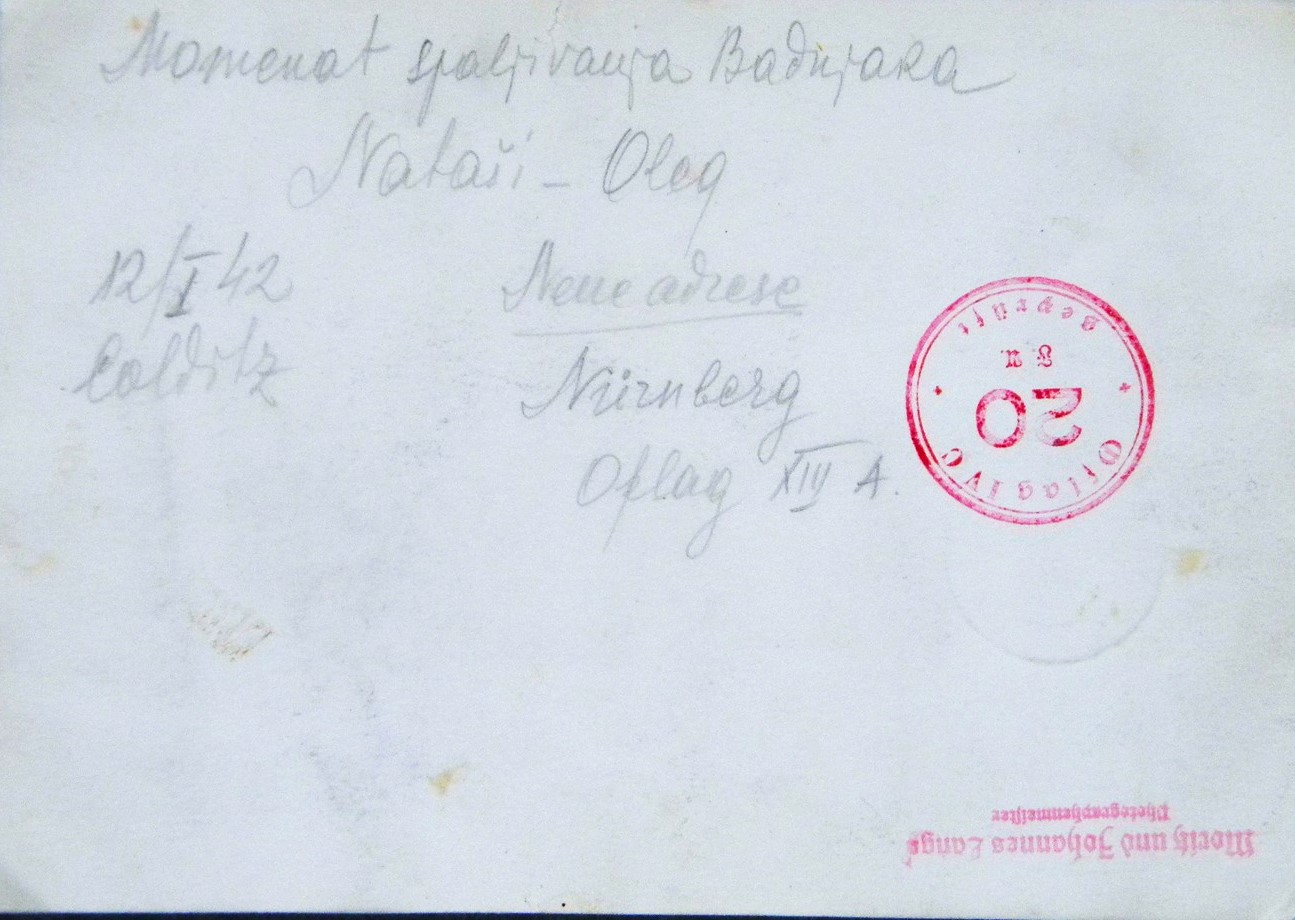 Momenat spaljivanja Badnjaka
Nataši – Oleg
12/I 42
Colditz
Neue adrese
Nürnberg
Oflag XIII A.
Oflag IV C
20
F. u.
geprüft
Moritz und Johannes Lange
Photographenmeister